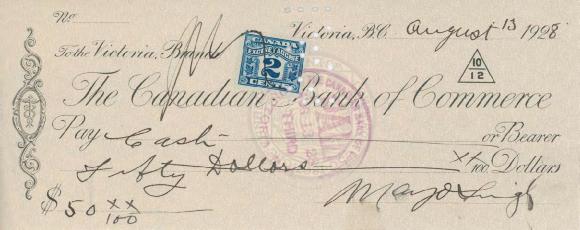 No. Victoria, B.C. August 13 1928
To the Victoria, Branch
CANADA
EXCISE TAX
2
CENTS
10
12
The Canadian Bank of Commerce
Pay Cash or Bearer
Fifty Dollars xx/100 Dollars
$50 xx/100
Mayo Singh